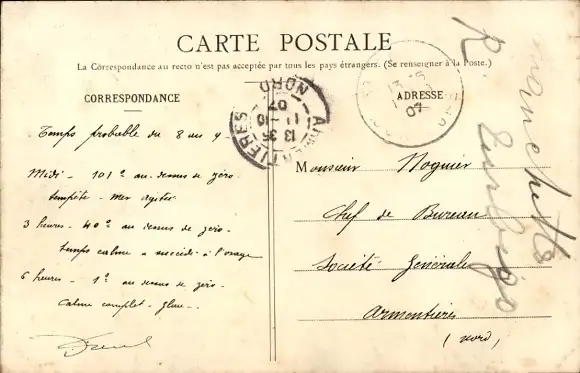 CARTE POSTALE
La Correspondance au recto n'est pas acceptée par tous les pays étrangers. (Se renseigner à la Poste.)
CORRESPONDANCE
ADRESSE
Temps probable du 8 au 9
Midi - 101° au dessus de zéro
tempête - mer agitée
3 heures - 40° au dessus de zéro -
temps calme a succédé à l'orage
6 heures - 1° au dessus de zéro -
Calme complet -
ARMENTIERES
13 35
11 - 10
07
NORD
13
07
Monsieur Noguier
Chef de Bureau
Société Générale
Armentières
(Nord)